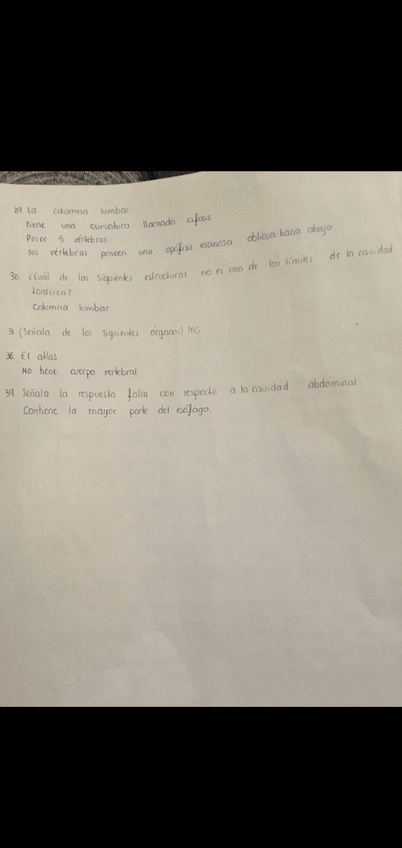 29. La columna lumbar
Tiene una curvatura llamada cifosis
Posee 5 vértebras.
Sus vértebras poseen una apófisis espinosa oblicua hacia abajo.
30. ¿Cuál de las siguientes estructuras no es uno de los límites de la cavidad
torácica?
Columna lumbar
31 (Señala de los siguientes órganos) NO
36. El atlas
NO tiene cuerpo vertebral
39. Señala la respuesta falsa con respecto a la cavidad abdominal.
Contiene la mayor parte del esófago.